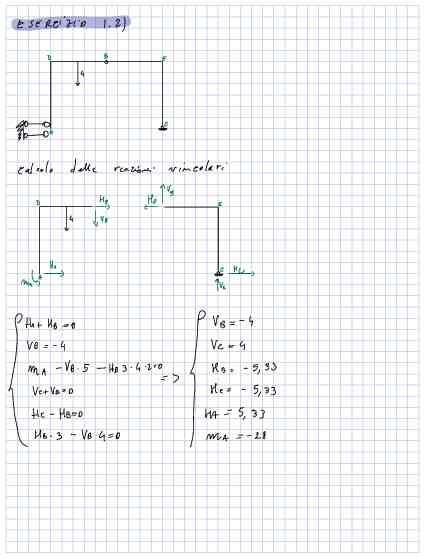 ESERCIZIO 1.2)
D B E
4
A C
calcolo delle reazioni vincolari
D HB HB VB E
4 VB
mA HA C HC
VC
HA + HB = 0
VB = -4
mA - VB · 5 - HB 3 - 4 · 2 = 0 =>
VC + VB = 0
HC - HB = 0
HB · 3 - VB · 4 = 0
VB = -4
VC = 4
HB = -5,33
HC = -5,33
HA = 5,33
mA = -28